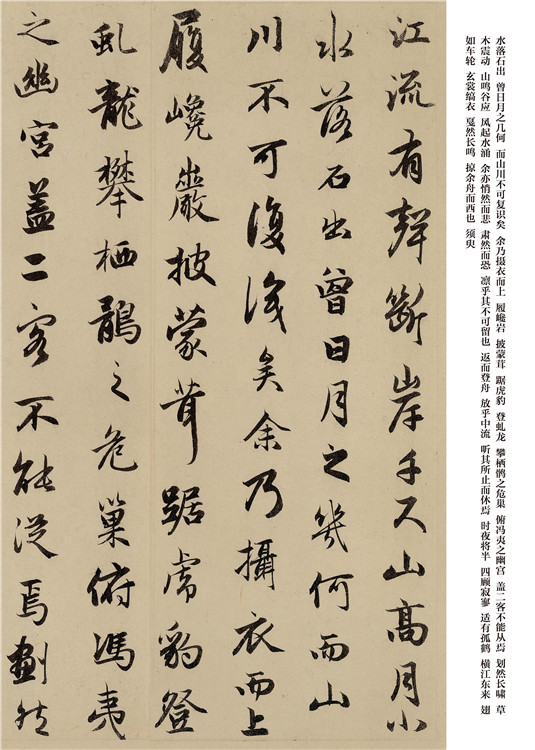 水落石出 曾日月之几何 而山川不可复识矣 余乃摄衣而上 履巉岩 披蒙茸 踞虎豹 登虬龙 攀栖鹘之危巢 俯冯夷之幽宫 盖二客不能从焉 划然长啸 草
木震动 山鸣谷应 风起水涌 余亦悄然而悲 肃然而恐 凛乎其不可留也 返而登舟 放乎中流 听其所止而休焉 时夜将半 四顾寂寥 适有孤鹤 横江东来 翅
如车轮 玄裳缟衣 戛然长鸣 掠余舟而西也 须臾
江流有聲斷岸千尺山高月小
水落石出曾日月之幾何而山
川不可復識矣余乃攝衣而上
履巉巖披蒙茸踞虎豹登
虬龍攀栖鶻之危巢俯馮夷
之幽宮盖二客不能從焉劃然